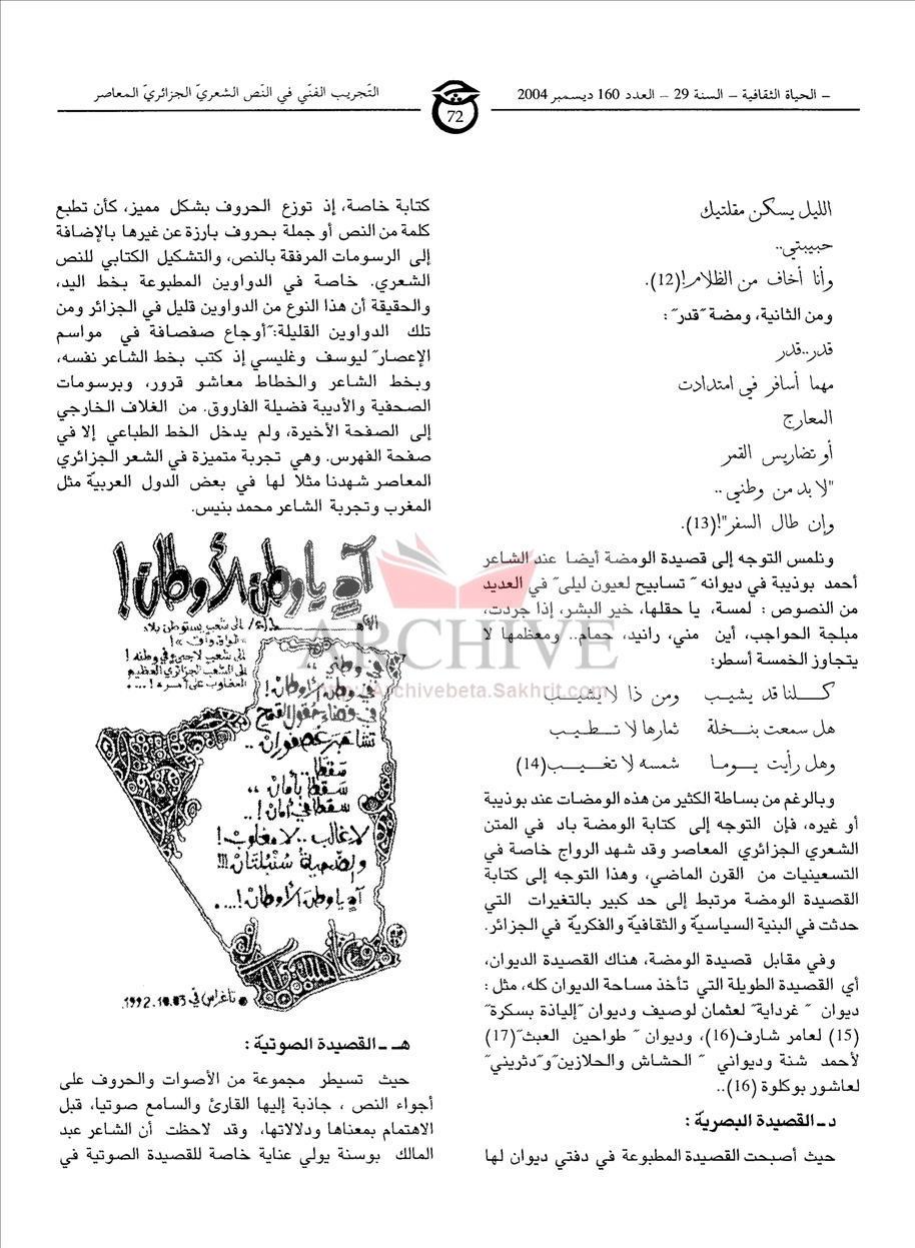 – الحياة الثقافية – السنة 29 – العدد 160 ديسمبر 2004
72
التّجريب الفنّي في النّص الشعريّ الجزائريّ المعاصر
الليل يسكن مقلتيك
حبيبتي..
وأنا أخاف من الظلام!(12).
ومن الثانية، ومضة "قدر" :
قدر..قدر
مهما أسافر في امتدادت
المعارج
أو تضاريس القمر
"لا بد من وطني ..
وإن طال السفر"!(13).
ونلمس التوجه إلى قصيدة الومضة أيضا عند الشاعر
أحمد بوذيبة في ديوانه "تسابيح لعيون ليلى" في العديد
من النصوص : لمسة، يا حقلها، خير البشر، إذا جردت،
مبلجة الحواجب، أين مني، رانيد، حمام.. ومعظمها لا
يتجاوز الخمسة أسطر:
كـــلنا قد يشيب ومن ذا لا يشيــب
هل سمعت بنـــخلة ثمارها لا تـــطـيـب
وهل رأيت يـــوما شمسه لا تغـــيـــب(14)
وبالرغم من بساطة الكثير من هذه الومضات عند بوذيبة
أو غيره، فإن التوجه إلى كتابة الومضة باد في المتن
الشعري الجزائري المعاصر وقد شهد الرواج خاصة في
التسعينيات من القرن الماضي، وهذا التوجه إلى كتابة
القصيدة الومضة مرتبط إلى حد كبير بالتغيرات التي
حدثت في البنية السياسيّة والثقافيّة والفكريّة في الجزائر.
وفي مقابل قصيدة الومضة، هناك القصيدة الديوان،
أي القصيدة الطويلة التي تأخذ مساحة الديوان كله، مثل :
ديوان " غرداية" لعثمان لوصيف وديوان "إلياذة بسكرة"
(15) لعامر شارف(16)، وديوان " طواحين العبث"(17)
لأحمد شنة وديواني " الحشاش والحلازين"و"دثريني"
لعاشور بوكلوة (16)..
د ـ القصيدة البصرية :
حيث أصبحت القصيدة المطبوعة في دفتي ديوان لها
كتابة خاصة، إذ توزع الحروف بشكل مميز، كأن تطبع
كلمة من النص أو جملة بحروف بارزة عن غيرها بالإضافة
إلى الرسومات المرفقة بالنص، والتشكيل الكتابي للنص
الشعري. خاصة في الدواوين المطبوعة بخط اليد،
والحقيقة أن هذا النوع من الدواوين قليل في الجزائر ومن
تلك الدواوين القليلة:"أوجاع صفصافة في مواسم
الإعصار" ليوسف وغليسي إذ كتب بخط الشاعر نفسه،
وبخط الشاعر والخطاط معاشو قرور، وبرسومات
الصحفية والأديبة فضيلة الفاروق. من الغلاف الخارجي
إلى الصفحة الأخيرة، ولم يدخل الخط الطباعي إلا في
صفحة الفهرس. وهي تجربة متميزة في الشعر الجزائري
المعاصر شهدنا مثلا لها في بعض الدول العربيّة مثل
المغرب وتجربة الشاعر محمد بنيس.
آهِ يا وطن الأوطان !
إلى شعب يستوطن بلاد
"الواق واق" !
إلى شعب لاجئ في وطنه !
إلى الشعب الجزائري العظيم
المغلوب على أمره !...
في وطني ،،
في وطن الأوطان !
في فضاء حقول القمح
تشاجر عصفوران ..
سقطا ..
سقطا بأمان ،،
سقطا في أمان !..
لا غالب .. لا مغلوب !
والضحية سنبلتان !!!
آه يا وطن الأوطان !...
تاغراس في 1992.10.03
ARCHIVE
http://Archivebeta.Sakhrit.com
هـ ـ القصيدة الصوتية :
حيث تسيطر مجموعة من الأصوات والحروف على
أجواء النص ، جاذبة إليها القارئ والسامع صوتيا، قبل
الاهتمام بمعناها ودلالاتها، وقد لاحظت أن الشاعر عبد
المالك بوسنة يولي عناية خاصة للقصيدة الصوتية في